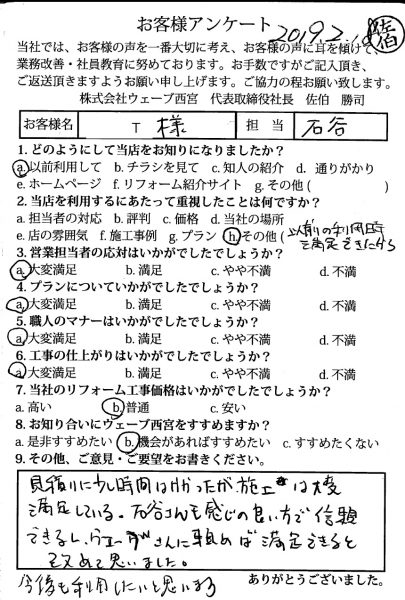 お客様アンケート 2019.2.18 佐伯
当社では、お客様の声を一番大切に考え、お客様の声に耳を傾けて、
業務改善・社員教育に努めております。お手数ですがご記入頂き、
ご返送頂きますようお願い申し上げます。ご協力の程お願い致します。
株式会社ウェーブ西宮 代表取締役社長 佐伯 勝司
お客様名 T 様 担当 石谷
1. どのようにして当店をお知りになりましたか?
a. 以前利用して b. チラシを見て c. 知人の紹介 d. 通りがかり
e. ホームページ f. リフォーム紹介サイト g. その他( )
2. 当店を利用するにあたって重視したことは何ですか?
a. 担当者の対応 b. 評判 c. 価格 d. 当社の場所
e. 店の雰囲気 f. 施工事例 g. プラン h. その他( 以前の利用時
満足できたから
3. 営業担当者の応対はいかがでしたでしょうか?
a. 大変満足 b. 満足 c. やや不満 d. 不満
4. プランについていかがでしたでしょうか?
a. 大変満足 b. 満足 c. やや不満 d. 不満
5. 職人のマナーはいかがでしたでしょうか?
a. 大変満足 b. 満足 c. やや不満 d. 不満
6. 工事の仕上がりはいかがでしたでしょうか?
a. 大変満足 b. 満足 c. やや不満 d. 不満
7. 当社のリフォーム工事価格はいかがでしたでしょうか?
a. 高い b. 普通 c. 安い
8. お知り合いにウェーブ西宮をすすめますか?
a. 是非すすめたい b. 機会があればすすめたい c. すすめたくない
9. その他、ご意見・ご要望をお書きください。
見積りに少し時間はかかったが、施工は大変
満足している。石谷さんも感じの良い方で信頼
できるし、ウェーブさんに頼めば満足できると
改めて思いました。
今後も利用したいと思います
ありがとうございました。